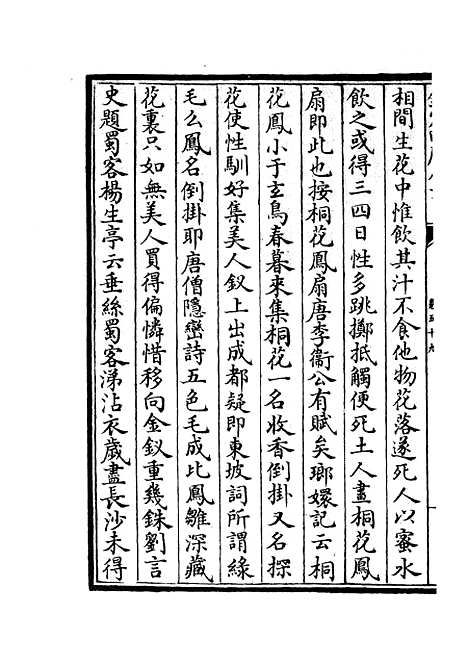 相間生花中惟飲其汁不食他物花落遂死人以蜜水
飲之或得三四日性多跳擲抵觸便死土人畫桐花鳳
扇即此也按桐花鳳扇唐李衞公有賦矣瑯嬛記云桐
花鳳小于玄鳥春暮來集桐花一名收香倒掛又名探
花使性馴好集美人釵上出成都疑即東坡詞所謂綠
毛么鳳名倒掛耶唐僧隱巒詩五色毛成比鳳雛深藏
花裏只如無美人買得偏憐惜移向金釵重幾銖劉言
史題蜀客楊生亭云垂絲蜀客涕沾衣歲盡長沙未得